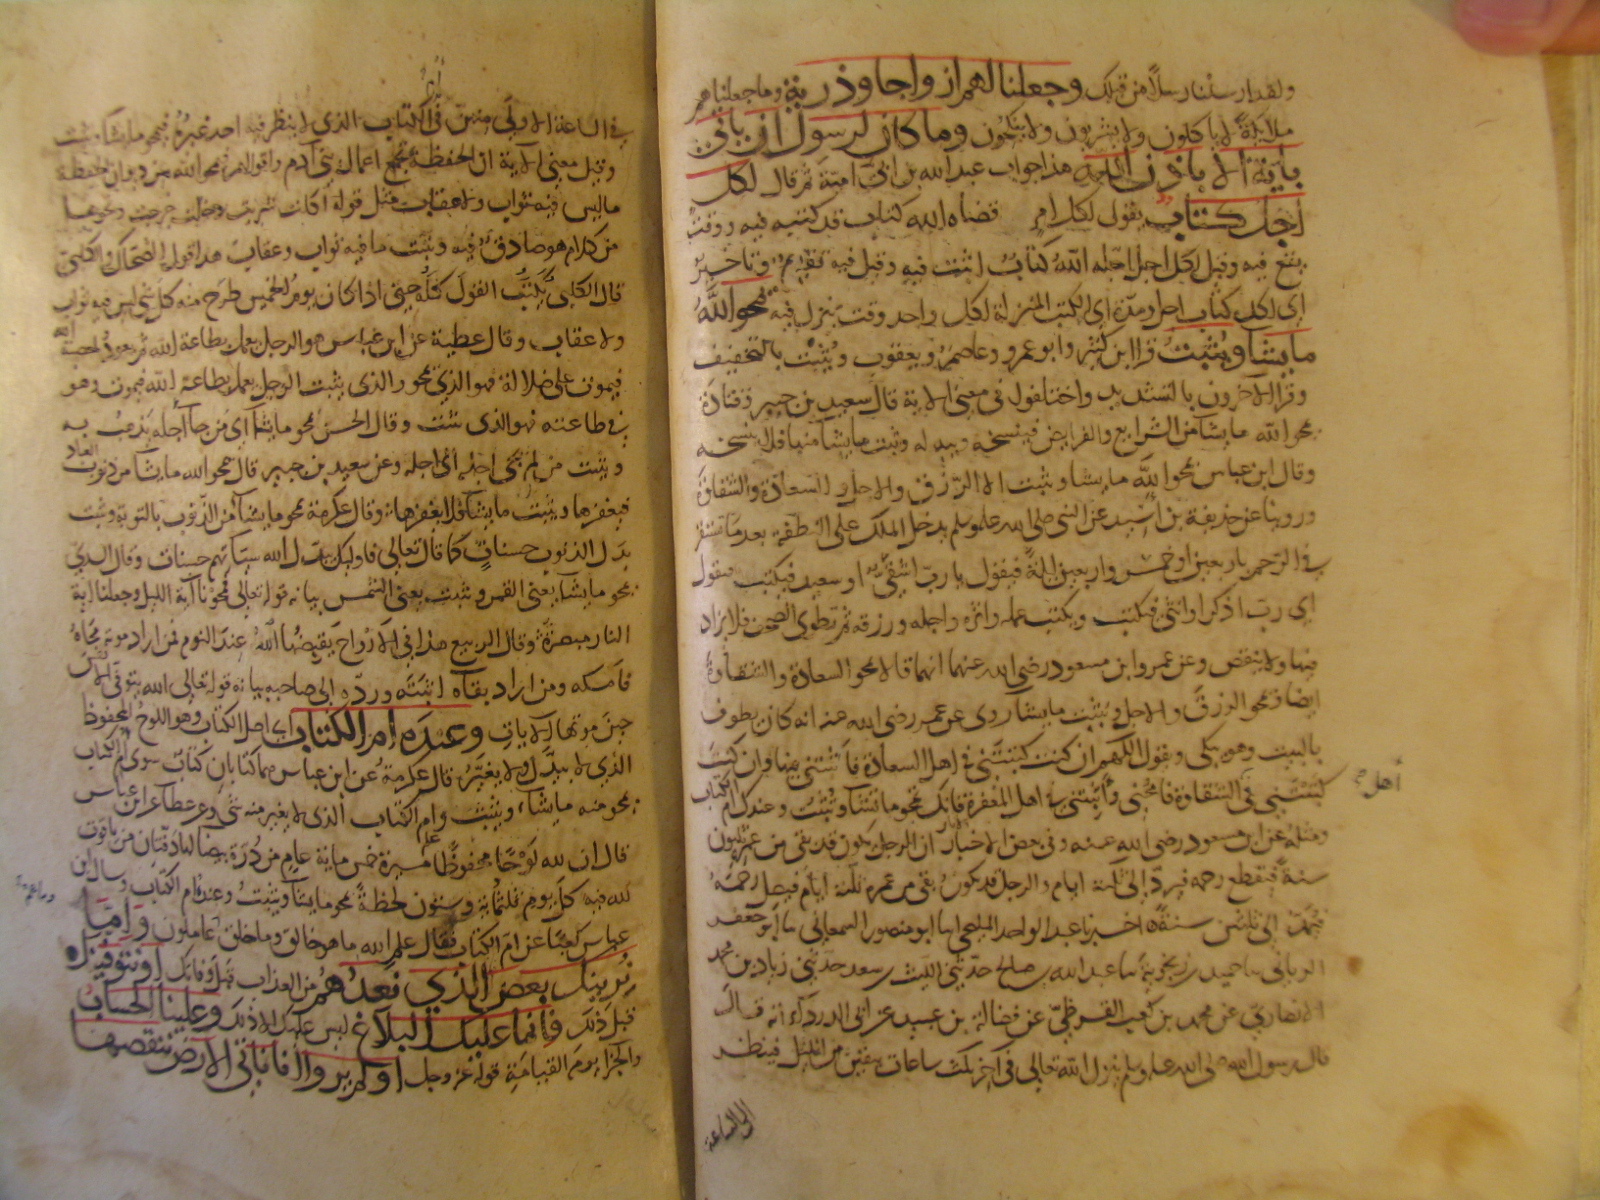 ولقد ارسلنا رسلا من قبلك وجعلنا لهم ازواجا وذرية وما جعلناهم
ملايكة لا ياكلون ولا يشربون ولا ينكحون وما كان لرسول ان ياتي
باية الا باذن الله هذا جواب عبد الله بن ابي امية ثم قال لكل
اجل كتاب يقول لكل امر قضاه الله كتاب قد كتبه فيه ووقت
يقع فيه وقيل لكل اجل اجله الله كتاب اثبت فيه وقيل فيه تقديم وتاخير
اي لكل كتاب اجل ومدة اي الكتب المنزلة لكل واحد وقت ينزل فيه يمحو الله
ما يشا ويثبت قرا ابن كثير وابو عمرو وعاصم ويعقوب ويثبت بالتخفيف
وقرا الاخرون بالتشديد واختلفوا في معنى الاية قال سعيد بن جبير وقتادة
يمحو الله ما يشا من الشرايع والفرايض فينسخه ويبدله ويثبت ما يشا منها فلا ينسخه
وقال ابن عباس يمحو الله ما يشا ويثبت الا الرزق والاجل والسعادة والشقاوة
وروينا عن حذيفة بن اسيد عن النبي صلى الله عليه وسلم يدخل الملك على النطفة بعد ما تستقر
في الرحم باربعين او خمس واربعين ليلة فيقول يا رب اشقي او سعيد فيكتب فيقول
اي رب اذكر او انثى فيكتب ويكتب عمله واثره واجله ورزقه ثم تطوى الصحف فلا يزاد
فيها ولا ينقص وعن عمر وابن مسعود رضي الله عنهما انهما قالا يمحو السعادة والشقاوة
ايضا ويمحو الرزق والاجل ويثبت ما يشا روى عن عمر رضي الله عنه انه كان يطوف
بالبيت وهو يبكي ويقول اللهم ان كنت كتبتني في اهل السعادة فاثبتني فيها وان كنت
كتبتني في الشقاوة فامحني واثبتني في اهل المغفرة فانك تمحو ما تشا وتثبت وعندك ام الكتاب
اهل صح
ومثله عن ابن مسعود رضي الله عنه وفي بعض الاخبار ان الرجل يكون قد بقي من عمره ثلثون
سنة فيقطع رحمه فيرد الى ثلثة ايام والرجل قد يكون بقي من عمره ثلثة ايام فيصل رحمه
فيمد الى ثلثين سنة اخبرنا عبد الواحد المليحي انا ابو منصور السمعاني نا ابو جعفر
الرياني نا حميد بن زنجوية نا عبد الله بن صالح حدثني الليث بن سعد حدثني زياد بن محمد
الانصاري عن محمد بن كعب القرظي عن فضالة بن عبيد عن ابي الدرداء انه قال
قال رسول الله صلى الله عليه وسلم ينزل الله تعالى في اخر ثلث ساعات يبقين من الليل فينظر
في الساعة
في الساعة الاولى منهن في ام الكتاب الذي لا ينظر فيه احد غيره فيمحو ما يشا ويثبت
وقيل معنى الاية ان الحفظة تجمع اعمال بني ادم واقوالهم فيمحو الله من ديوان الحفظة
ما ليس فيه ثواب ولا عقاب مثل قوله اكلت شربت دخلت خرجت ونحوها
من كلام هو صادق فيه ويثبت ما فيه ثواب وعقاب هذا قول الضحاك والكلبي
قال الكلبي يكتب القول كله حتى اذا كان يوم الخميس طرح منه كل شي ليس فيه ثواب
ولا عقاب وقال عطية عن ابن عباس هو الرجل يعمل بطاعة الله ثم يعود لمعصية الله
فيموت على ضلالة فهو الذي يمحو والذي يثبت الرجل يعمل بطاعة الله فيموت وهو
في طاعته فهو الذي يثبت وقال الحسن يمحو ما يشا اي من جا اجله يذهب به
ويثبت من لم يجي اجله الى اجله وعن سعيد بن جبير قال يمحو الله ما يشا من ذنوب العباد
فيغفرها ويثبت ما يشا فلا يغفرها وقال عكرمة يمحو ما يشا من الذنوب بالتوبة ويثبت
بدل الذنوب حسنات كما قال تعالى فاوليك يبدل الله سياتهم حسنات وقال السدي
يمحو ما يشا يعني القمر ويثبت يعني الشمس بيانه قوله تعالى فمحونا اية الليل وجعلنا اية
النهار مبصرة وقال الربيع هذا في الارواح يقبضها الله عند النوم فمن اراد موته محاه
فامسكه ومن اراد بقاه اثبته ورده الى صاحبه بيانه قوله تعالى الله يتوفى الانفس
حين موتها الايات وعنده ام الكتاب اي اصل الكتاب وهو اللوح المحفوظ
الذي لا يبدل ولا يغير قال عكرمة عن ابن عباس هما كتابان كتاب سوى ام الكتاب
يمحو منه ما يشاء ويثبت وام الكتاب الذي لا يغير منه شي وعن عطا عن ابن عباس
قال ان لله لوحا محفوظا مسيرة خمس ماية عام من درة بيضا له دفتان من ياقوت
لله فيه كل يوم ثلثماية وستون لحظة يمحو ما يشا ويثبت وعنده ام الكتاب وسال ابن
عباس كعبا عن ام الكتاب فقال علم الله ما هو خالق وما خلق عاملون واما
نرينك بعض الذي نعدهم من العذاب قبل وفاتك او نتوفينك
قبل ذلك فانما عليك البلاغ ليس عليك الا ذلك وعلينا الحساب
والجزاء يوم القيامة قوله عز وجل اولم يروا انا ناتي الارض ننقصها